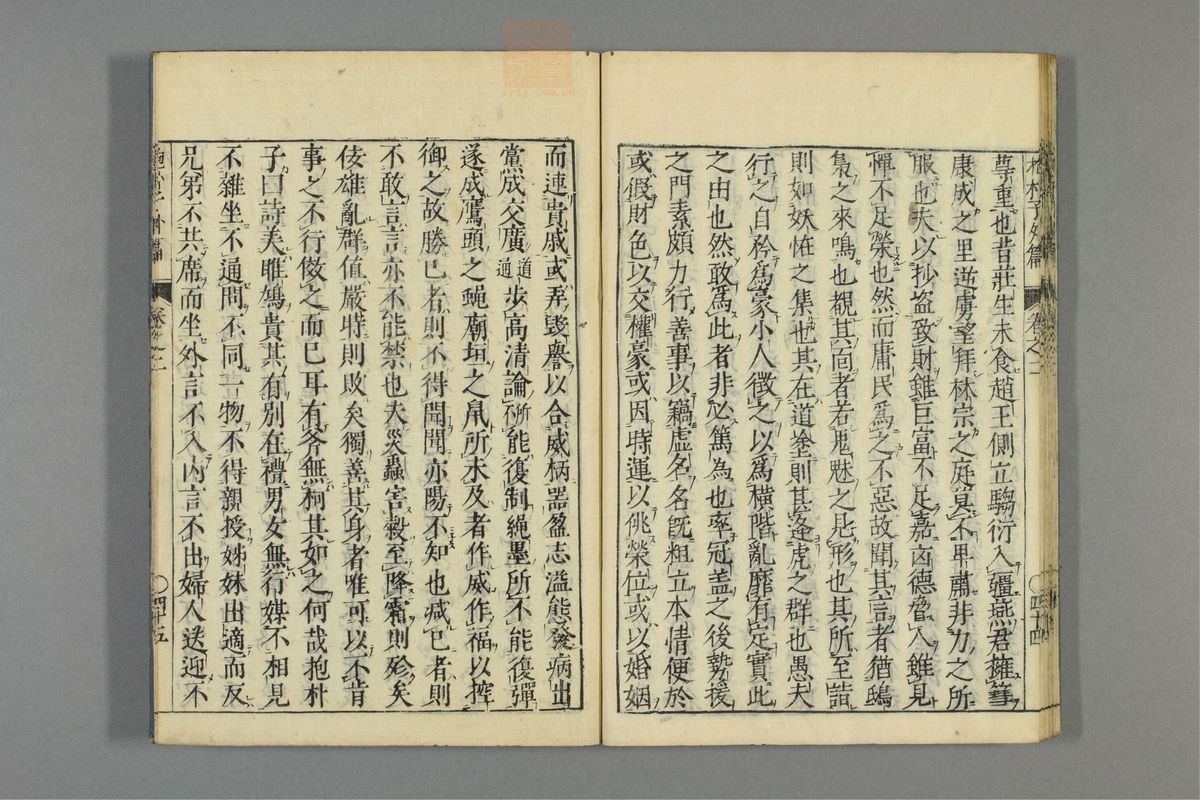 尊重也昔莊生未食趙王側立騶衍入疆燕君擁篲
康成之里逆虜望拜林宗之庭莫不卑肅非力之所
服也夫以抄盗致財雖巨富不足嘉凶德脅人雖見
憚不足榮也然而庸民爲之不惡故聞其言者猶鴟
梟之來鳴也覩其面者若鬼魅之見形也其所至詣
則如妖恠之集也其在道塗則甚逢虎之群也愚夫
行之自矜爲豪小人徵之以爲橫階亂靡有定實此
之由也然敢爲此者非必篤為也率冠盖之後勢援
之門素頗力行善事以竊虚名名旣粗立本情便於
或假財色以交權豪或因時運以佻榮位或以婚姻
抱朴子外篇
卷之二
〇四十四
而連貴戚或弄毀譽以合威柄噐盈志溢態發病出
黨成交廣道通步高清論所不能復制繩墨所不能復彈
遂成鷹頭之蠅廟垣之鼠所未及者作威作福以控
御之故勝已者則不得聞聞亦陽不知也減已者則
不敢言言亦不能禁也夫災蟲害穀至降霜則殄矣
佞雄亂群值嚴時則敗矣獨善其身者唯可以不肯
事之不行倣之而已耳有斧無柯其如之何哉抱朴
子曰詩美雎鳩貴其有別在禮男女無行媒不相見
不雜坐不通問不同一物不得親授姊妹出適而反
兄弟不共席而坐外言不入內言不出婦人送迎不
〇四十五